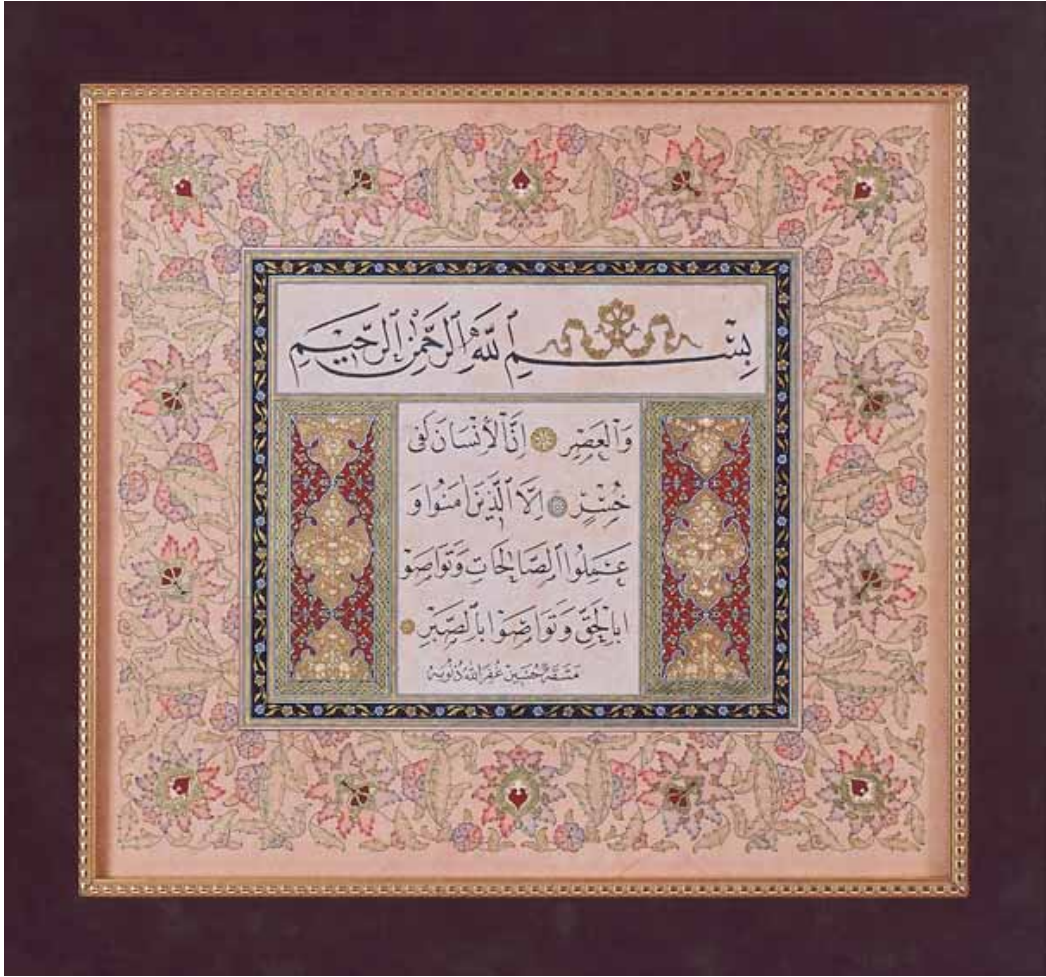 بِسْمِ ٱللهِ ٱلرَّحْمٰنِ ٱلرَّحِيمِ
وَٱلْعَصْرِ ۝ اِنَّ ٱلْاِنْسَانَ لَفِى
خُسْرٍ ۝ اِلَّا ٱلَّذِينَ اٰمَنُوا وَ
عَمِلُوا ٱلصَّالِحَاتِ وَتَوَاصَوْ
ا بِالْحَقِّ وَتَوَاصَوْا بِالصَّبْرِ ۝
مشقه حسين غفر الله ذنوبه